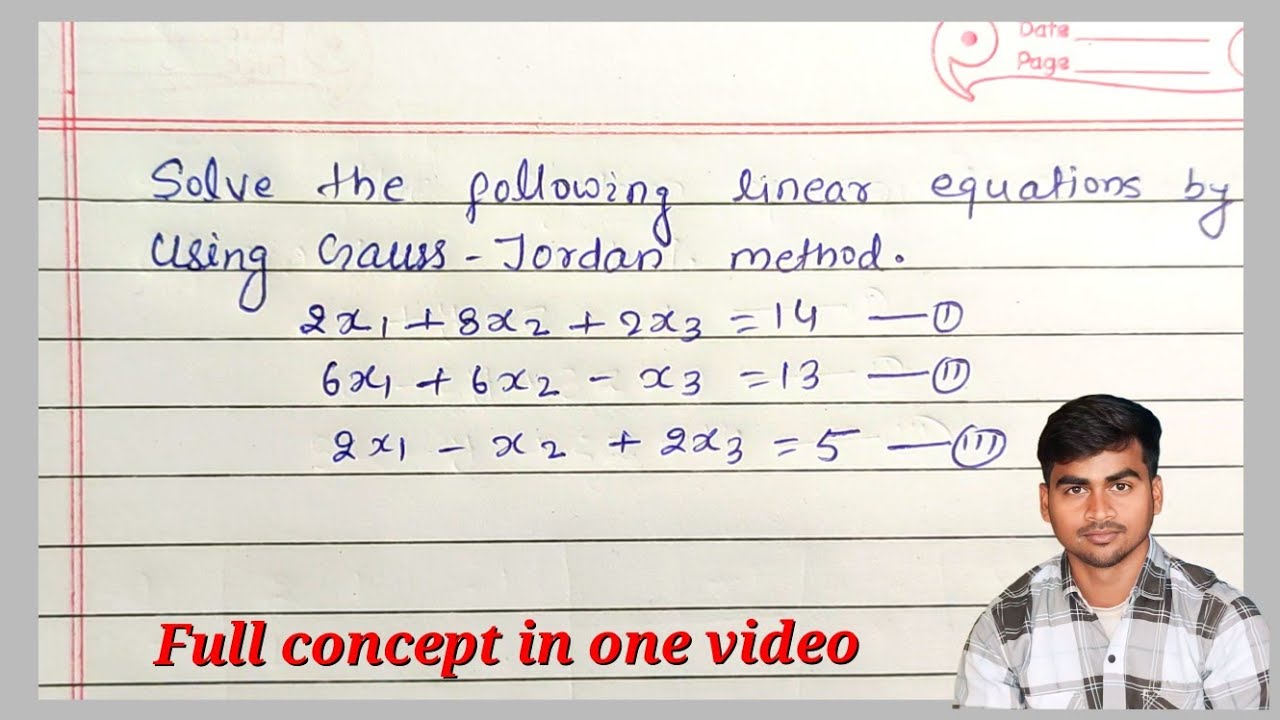 Date
Page
Solve the following linear equations by
using Gauss-Jordan method.
2x₁ + 8x₂ + 2x₃ = 14 — (I)
6x₁ + 6x₂ - x₃ = 13 — (II)
2x₁ - x₂ + 2x₃ = 5 — (III)
Full concept in one video